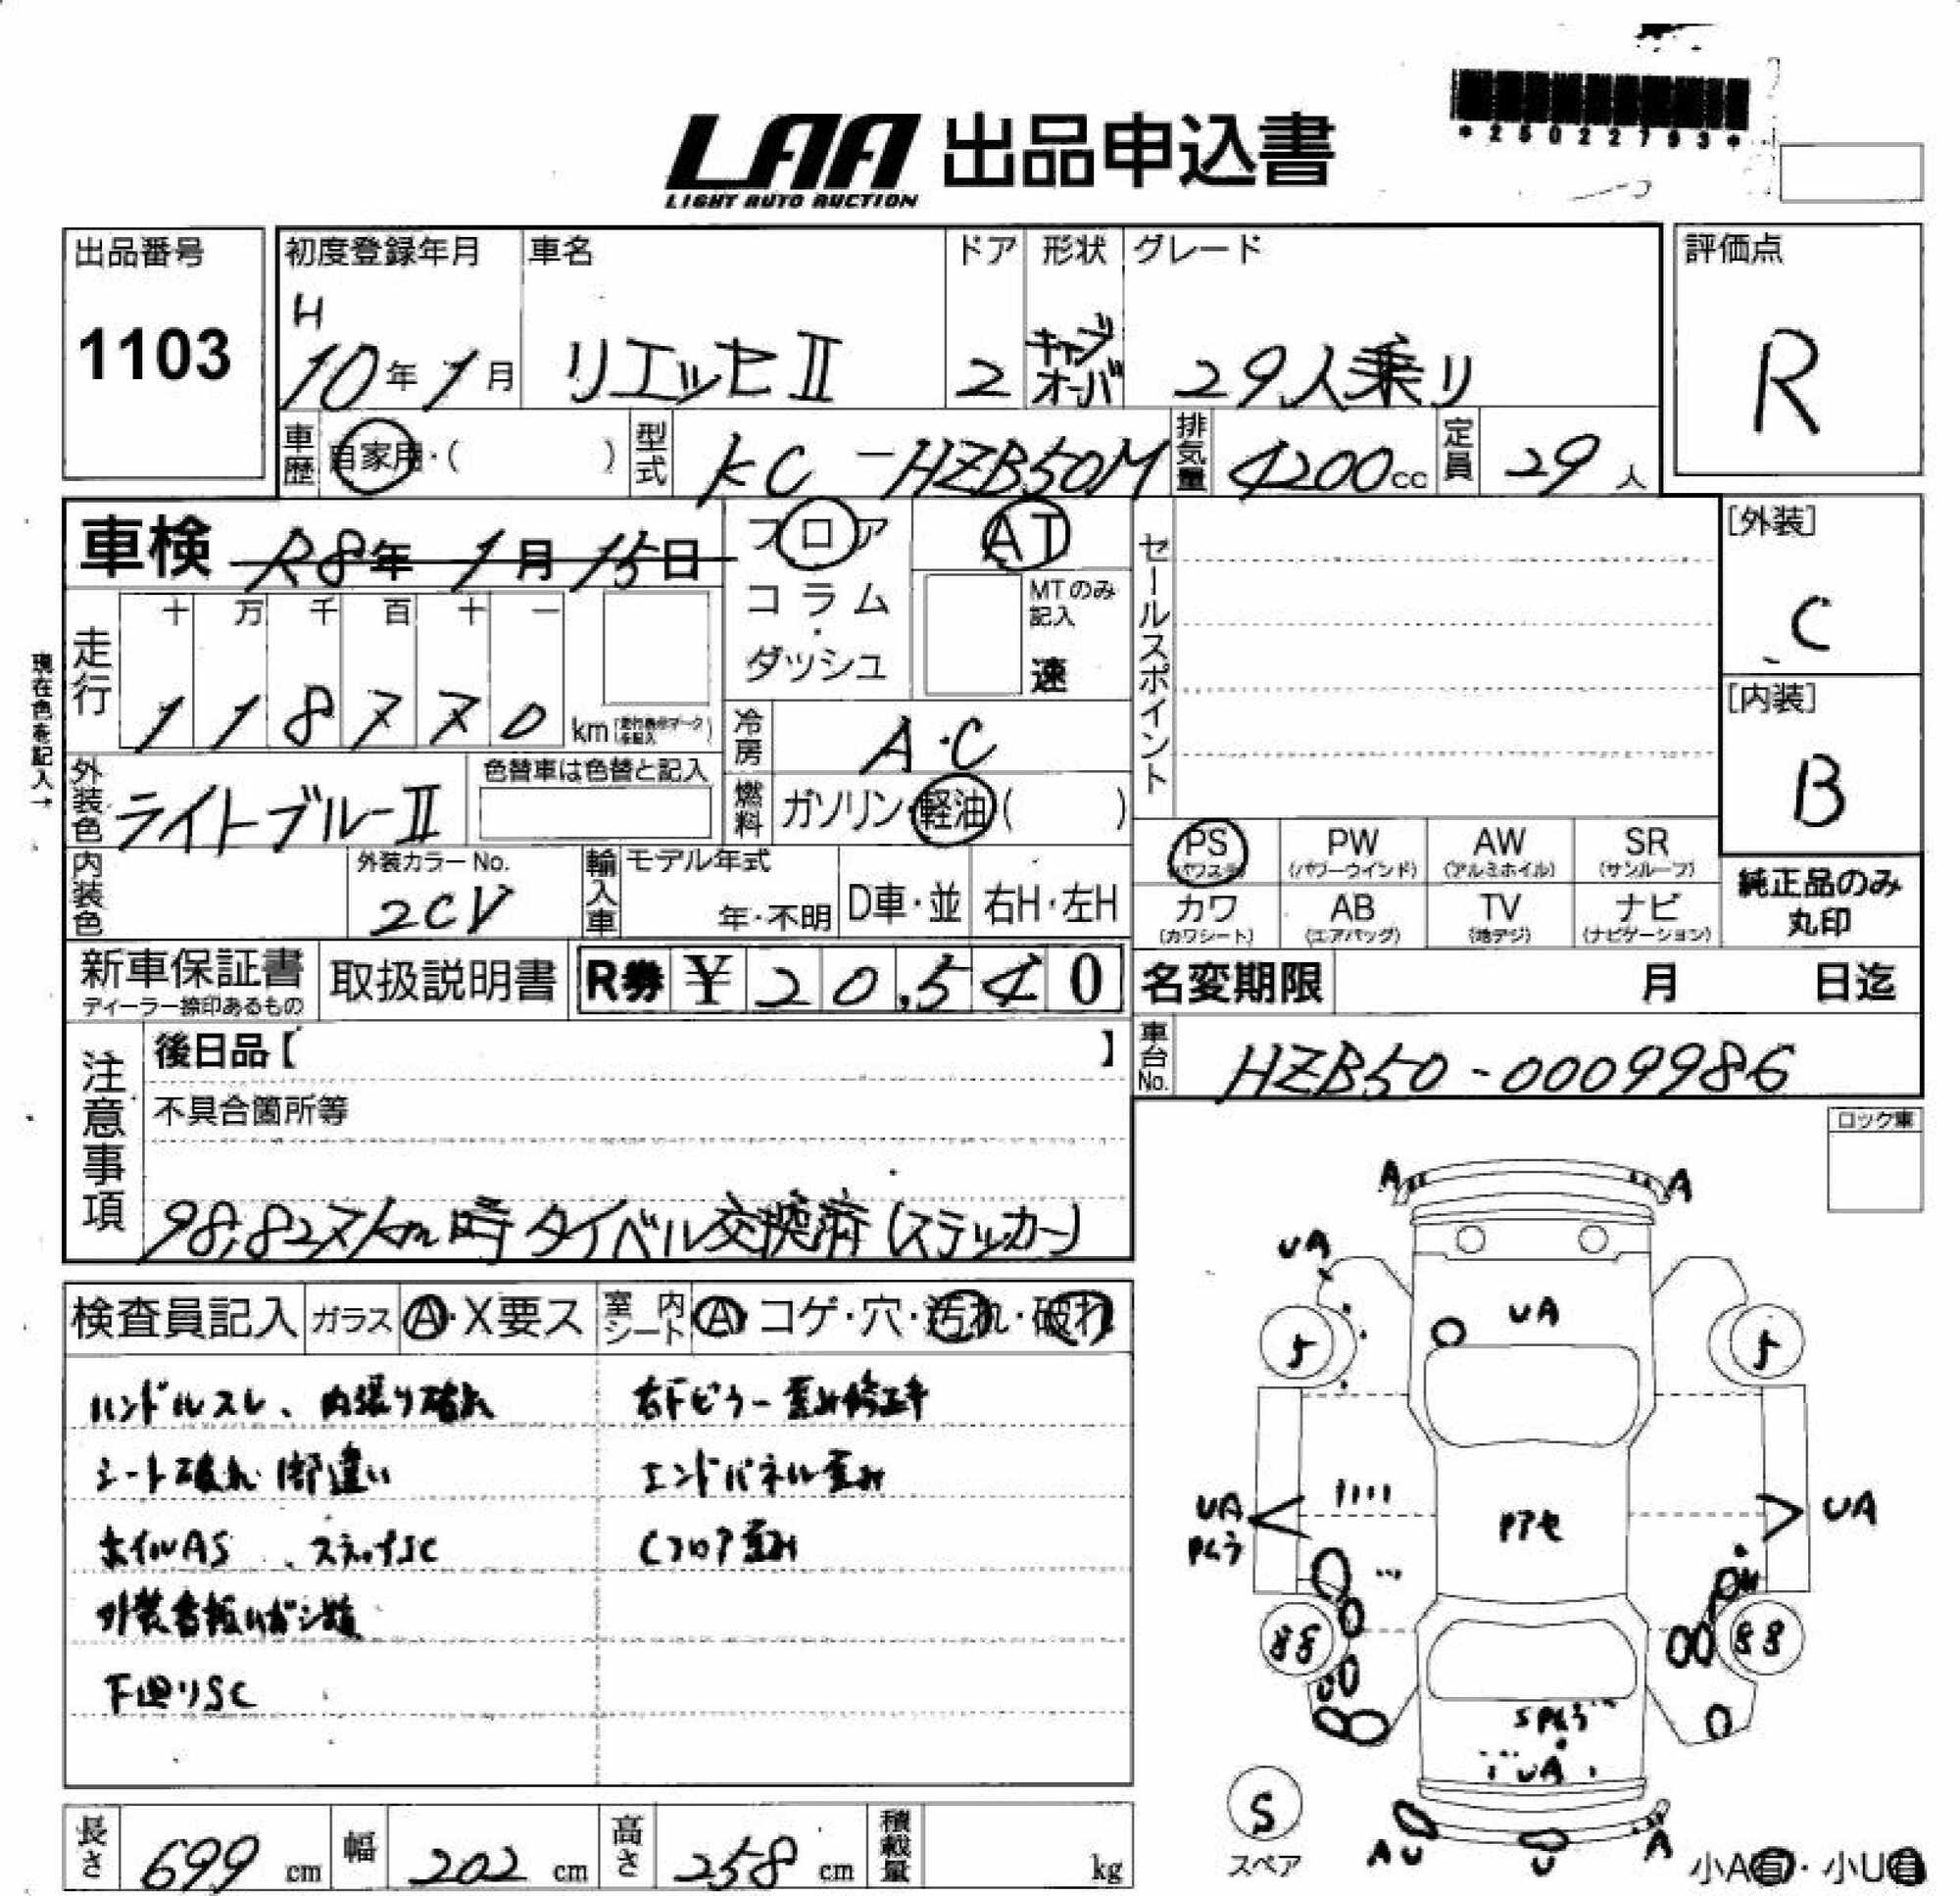 *25022793*
LAA 出品申込書
LIGHT AUTO AUCTION
出品番号 初度登録年月 車名 ドア 形状 グレード 評価点
1103 H10年1月 リエッセⅡ 2 キャブオーバ 29人乗り R
車歴 自家用・( ) 型式 KC-HZB50M 排気量 4200cc 定員 29人
車検 R8年1月15日 フロア AT セールスポイント [外装]
コラム・ MTのみ記入 C
ダッシュ 速
走行 十 万 千 百 十 一
1 1 8 7 7 0 km
現在色を記入→
冷房 A・C [内装]
B
外装色 ライトブルーⅡ 色替車は色替と記入 燃料 ガソリン・軽油( )
PS PW AW SR
(パワステ) (パワーウインド) (アルミホイル) (サンルーフ)
内装色 外装カラーNo. 2CV 輸入車 モデル年式 年・不明 D車・並 右H・左H
カワ AB TV ナビ 純正品のみ
(カワシート) (エアバッグ) (地デジ) (ナビゲーション) 丸印
新車保証書 取扱説明書 R券 ¥ 20,540 名変期限 月 日迄
ディーラー捺印あるもの
車台No. HZB50-0009986
注意事項 後日品【 】
不具合箇所等
98,827km時タイベル交換済(ステッカー)
ロック車
検査員記入 ガラス A・X要ス 室内シート A・コゲ・穴・汚れ・破れ
ハンドルスレ、内張り破れ 右Fピラー歪み修正キ
シート破れ・ エンドパネル歪み
ホイルAS、ステップSC Cフロア歪み
外装看板ハガシ跡
下廻りSC
A A
UA
UA
5 5
UA Pムラ Pアセ UA
88 88
SPムラ
UA
S
スペア
AU U A
小A有・小U有
長さ 699 cm 幅 202 cm 高さ 258 cm 積載量 kg